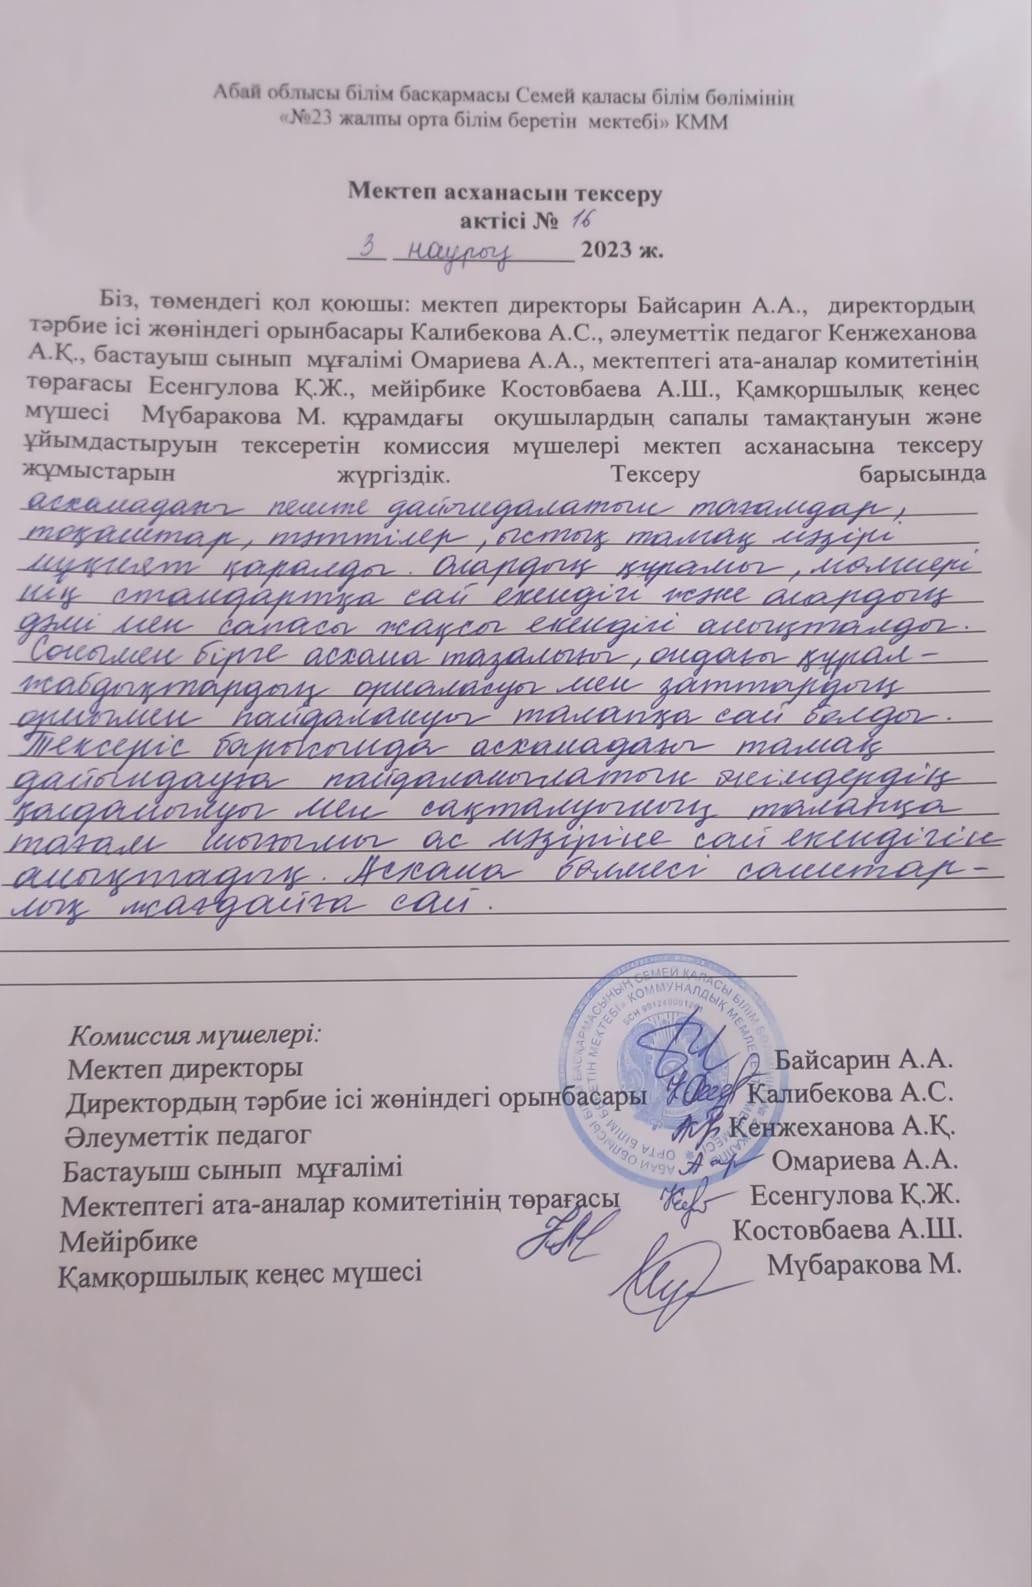 Абай облысы білім басқармасы Семей қаласы білім бөлімінің
«№23 жалпы орта білім беретін мектебі» КММ
Мектеп асханасын тексеру
актісі № 16
3 наурыз 2023 ж.
Біз, төмендегі қол қоюшы: мектеп директоры Байсарин А.А., директордың
тәрбие ісі жөніндегі орынбасары Калибекова А.С., әлеуметтік педагог Кенжеханова
А.Қ., бастауыш сынып мұғалімі Омариева А.А., мектептегі ата-аналар комитетінің
төрағасы Есенгулова Қ.Ж., мейірбике Костовбаева А.Ш., Қамқоршылық кеңес
мүшесі Мүбаракова М. құрамдағы оқушылардың сапалы тамақтануын және
ұйымдастыруын тексеретін комиссия мүшелері мектеп асханасына тексеру
жұмыстарын жүргіздік. Тексеру барысында
асханадағы пеште дайындалатын тағамдар,
тоқаштар, тәттілер, ыстық тамақ мәзірі
мұқият қаралды. Олардың құрамы, мөлшері
нің стандартқа сай екендігі және олардың
дәмі мен сапасы жақсы екендігі анықталды.
Сонымен бірге асхана тазалығы, ондағы құрал-
жабдықтардың орналасуы мен заттардың
орнымен пайдалануы талапқа сай болды.
Тексеріс барысында асханадағы тамақ
дайындауға пайдаланылатын өнімдердің
қолданылуы мен сақталуының талапқа
тағам шығымы ас мәзіріне сай екендігін
анықтадық. Асхана бөлмесі санитар-
лық жағдайға сай.
Комиссия мүшелері:
Мектеп директоры Байсарин А.А.
Директордың тәрбие ісі жөніндегі орынбасары Калибекова А.С.
Әлеуметтік педагог Кенжеханова А.Қ.
Бастауыш сынып мұғалімі Омариева А.А.
Мектептегі ата-аналар комитетінің төрағасы Есенгулова Қ.Ж.
Мейірбике Костовбаева А.Ш.
Қамқоршылық кеңес мүшесі Мүбаракова М.